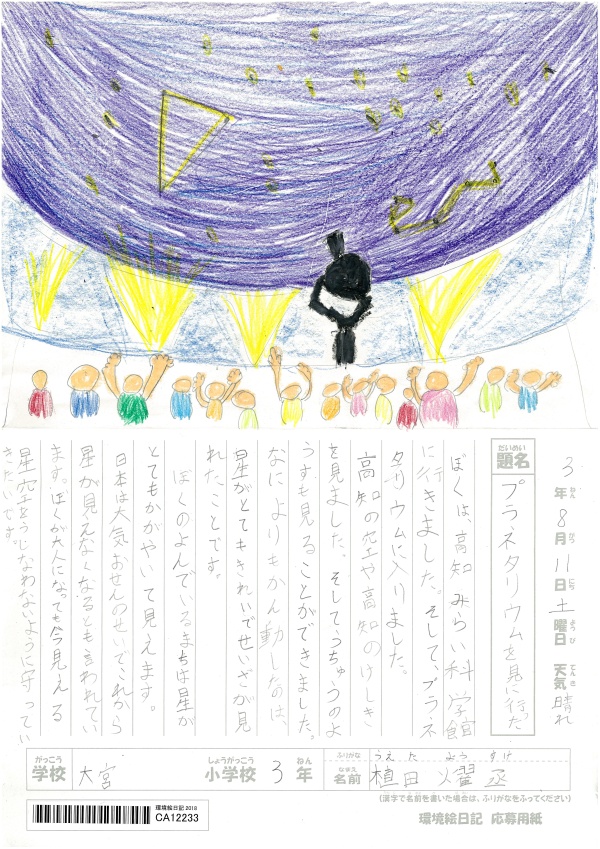 3年8月11日土曜日 天気晴れ
ねん がつ にち よう び てん き
だいめい
題名 プラネタリウムを見に行った
ぼくは、高知みらい科学館
に行きました。そして、プラネ
タリウムに入りました。
高知の空や高知のけしき
を見ました。そしてうちゅうのよ
うすも見ることができました。
なによりもかん動したのは、
星がとてもきれいでせいざが見
れたことです。
ぼくのよんでいるまちは星が
とてもかがやいて見えます。
日本は大気おせんのせいでこれから
星が見えなくなるとも言われてい
ます。ぼくが大人になっても今見える
星空をうしなわないように守ってい
きたいです。
がっこう しょうがっこう ねん
学校 大宮 小学校 3年
ふりがな うえた よう すけ
なまえ
名前 植田 燿丞
(漢字で名前を書いた場合は、ふりがなをふってください)
環境絵日記 2018
CA12233
環境絵日記 応募用紙